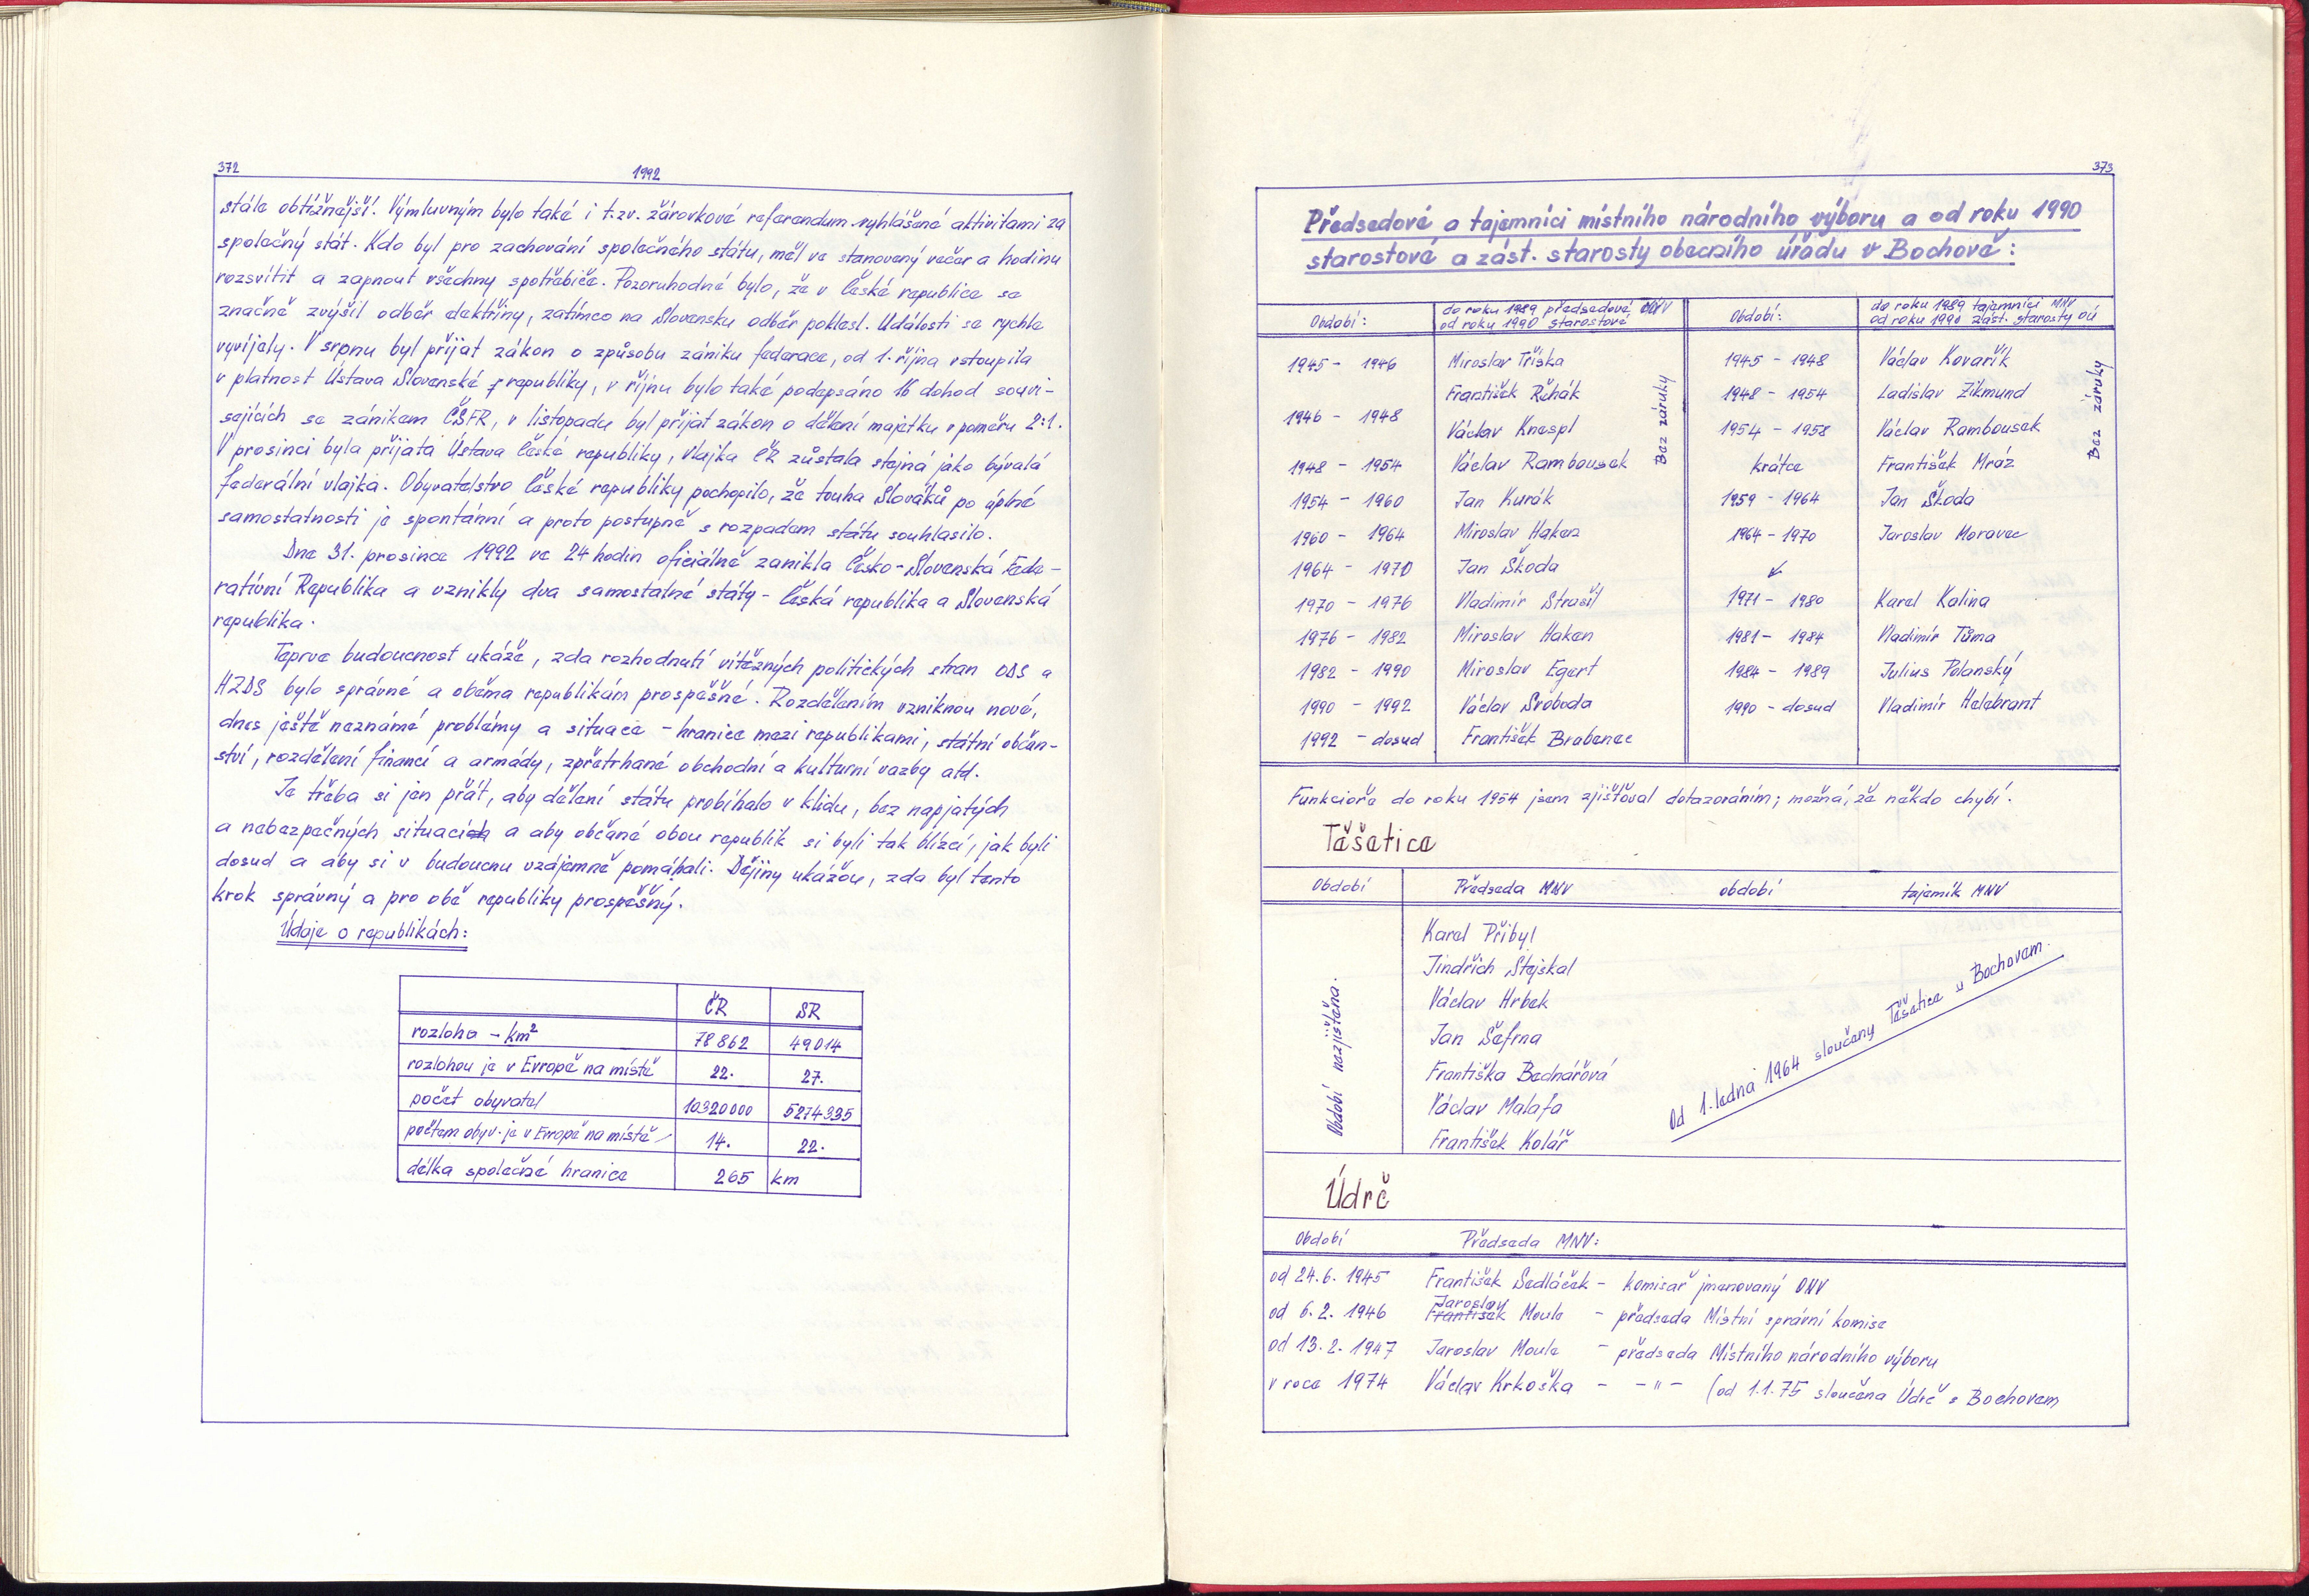 372
1992
stále obtížnější. Výmluvným bylo také i t.zv. žárovkové referendum vyhlášené aktivitami za
společný stát. Kdo byl pro zachování společného státu, měl ve stanovený večer a hodinu
rozsvítit a zapnout všechny spotřebiče. Pozoruhodné bylo, že v České republice se
značně zvýšil odběr elektřiny, zatímco na Slovensku odběr poklesl. Události se rychle
vyvíjely. V srpnu byl přijat zákon o způsobu zániku federace, od 1. října vstoupila
v platnost Ústava Slovenské republiky, v říjnu bylo také podepsáno 16 dohod souvi-
sejících se zánikem ČSFR, v listopadu byl přijat zákon o dělení majetku v poměru 2:1.
V prosinci byla přijata Ústava České republiky, vlajka ČR zůstala stejná jako bývalá
federální vlajka. Obyvatelstvo České republiky pochopilo, že touha Slováků po úplné
samostatnosti je spontánní a proto postupně s rozpadem státu souhlasilo.
Dne 31. prosince 1992 ve 24 hodin oficiálně zanikla Česko-Slovenská Fede-
rativní Republika a vznikly dva samostatné státy - Česká republika a Slovenská
republika.
Teprve budoucnost ukáže, zda rozhodnutí vítězných politických stran ODS a
HZDS bylo správné a oběma republikám prospěšné. Rozdělením vzniknou nové,
dnes ještě neznámé problémy a situace - hranice mezi republikami, státní občan-
ství, rozdělení financí a armády, zpřetrhané obchodní a kulturní vazby atd.
Je třeba si jen přát, aby dělení státu probíhalo v klidu, bez napjatých
a nebezpečných situací a aby občané obou republik si byli tak blízcí, jak byli
dosud a aby si v budoucnu vzájemně pomáhali. Dějiny ukážou, zda byl tento
krok správný a pro obě republiky prospěšný.
Údaje o republikách:
ČR SR
rozloha - km² 78 862 49 014
rozlohou je v Evropě na místě 22. 27.
počet obyvatel 10320000 5274335
počtem obyv. je v Evropě na místě 14. 22.
délka společné hranice 265 km
373
Předsedové a tajemníci místního národního výboru a od roku 1990
starostové a zást. starosty obecního úřadu v Bochově:
Období: do roku 1989 předsedové MNV Období: do roku 1989 tajemníci MNV
od roku 1990 starostové od roku 1990 zást. starosty OÚ
1945 - 1946 Miroslav Tříska 1945 - 1948 Václav Kovařík
František Řehák 1948 - 1954 Ladislav Zikmund
1946 - 1948 Václav Knespl 1954 - 1958 Václav Rambousek
1948 - 1954 Václav Rambousek krátce František Mráz
Bez záruky
Bez záruky
1954 - 1960 Jan Kurák 1959 - 1964 Jan Škoda
1960 - 1964 Miroslav Haken 1964 - 1970 Jaroslav Moravec
1964 - 1970 Jan Škoda
1970 - 1976 Vladimír Strašil 1971 - 1980 Karel Kalina
1976 - 1982 Miroslav Haken 1981 - 1984 Vladimír Tůma
1982 - 1990 Miroslav Egert 1984 - 1989 Julius Polanský
1990 - 1992 Václav Svoboda 1990 - dosud Vladimír Helebrant
1992 - dosud František Brabenec
Funkcioře do roku 1954 jsem zjišťoval dotazováním; možná, že někdo chybí.
Těšetice
Období Předseda MNV období tajemík MNV
Období nezjištěna.
Karel Přibyl
Jindřich Stejskal
Václav Hrbek
Jan Šefrna
Františka Bednářová
Václav Malafa
František Kolář
Od 1. ledna 1964 sloučeny Těšetice s Bochovem.
Údrč
Období Předseda MNV:
od 24.6. 1945 František Sedláček - komisař jmenovaný ONV
Jaroslav
od 6.2. 1946 František Moule - předseda Místní správní komise
od 13.2. 1947 Jaroslav Moule - předseda Místního národního výboru
v roce 1974 Václav Krkoška - -"- (od 1.1.75 sloučena Údrč s Bochovem